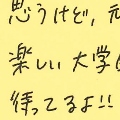 思うけど，元
楽しい大学
待ってるよ!!